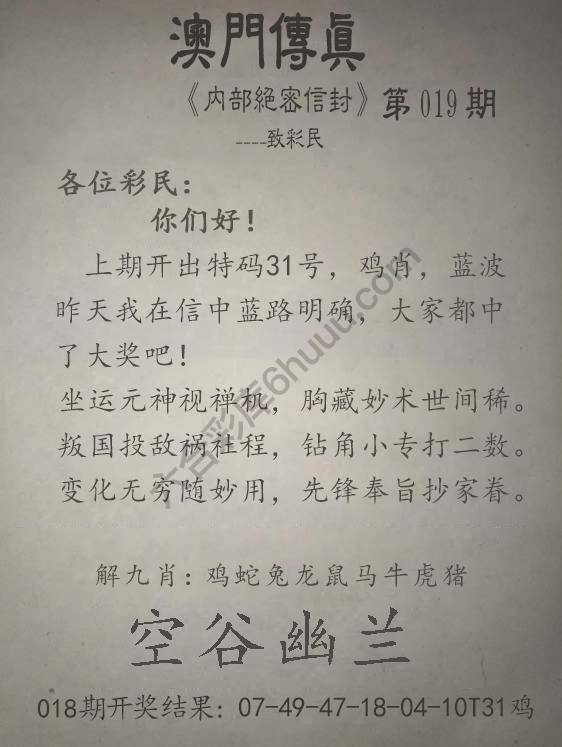 澳門傳眞
《内部絕密信封》第019期
----致彩民
各位彩民：
你们好！
上期开出特码31号，鸡肖，蓝波
昨天我在信中蓝路明确，大家都中
了大奖吧！
坐运元神视禅机，胸藏妙术世间稀。
叛国投敌祸社程，钻角小专打二数。
变化无穷随妙用，先锋奉旨抄家眷。
解九肖：鸡蛇兔龙鼠马牛虎猪
空谷幽兰
018期开奖结果：07-49-47-18-04-10T31鸡
六合彩库6huuu.com